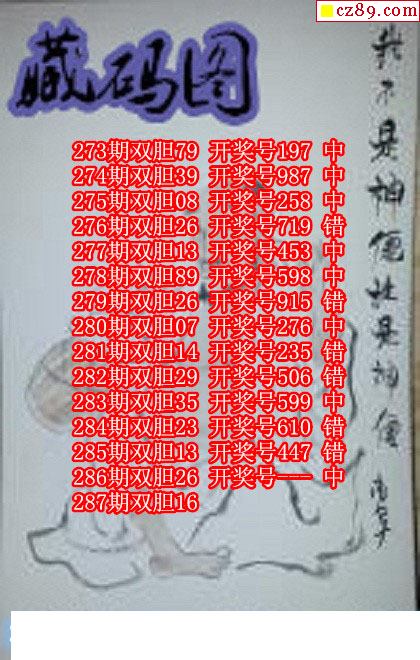 cz89.com
藏码图
273期双胆79 开奖号197 中
274期双胆39 开奖号987 中
275期双胆08 开奖号258 中
276期双胆26 开奖号719 错
277期双胆13 开奖号453 中
278期双胆89 开奖号598 中
279期双胆26 开奖号915 错
280期双胆07 开奖号276 中
281期双胆14 开奖号235 错
282期双胆29 开奖号506 错
283期双胆35 开奖号599 中
284期双胆23 开奖号610 错
285期双胆13 开奖号447 错
286期双胆26 开奖号--- 中
287期双胆16
我不是神
是神